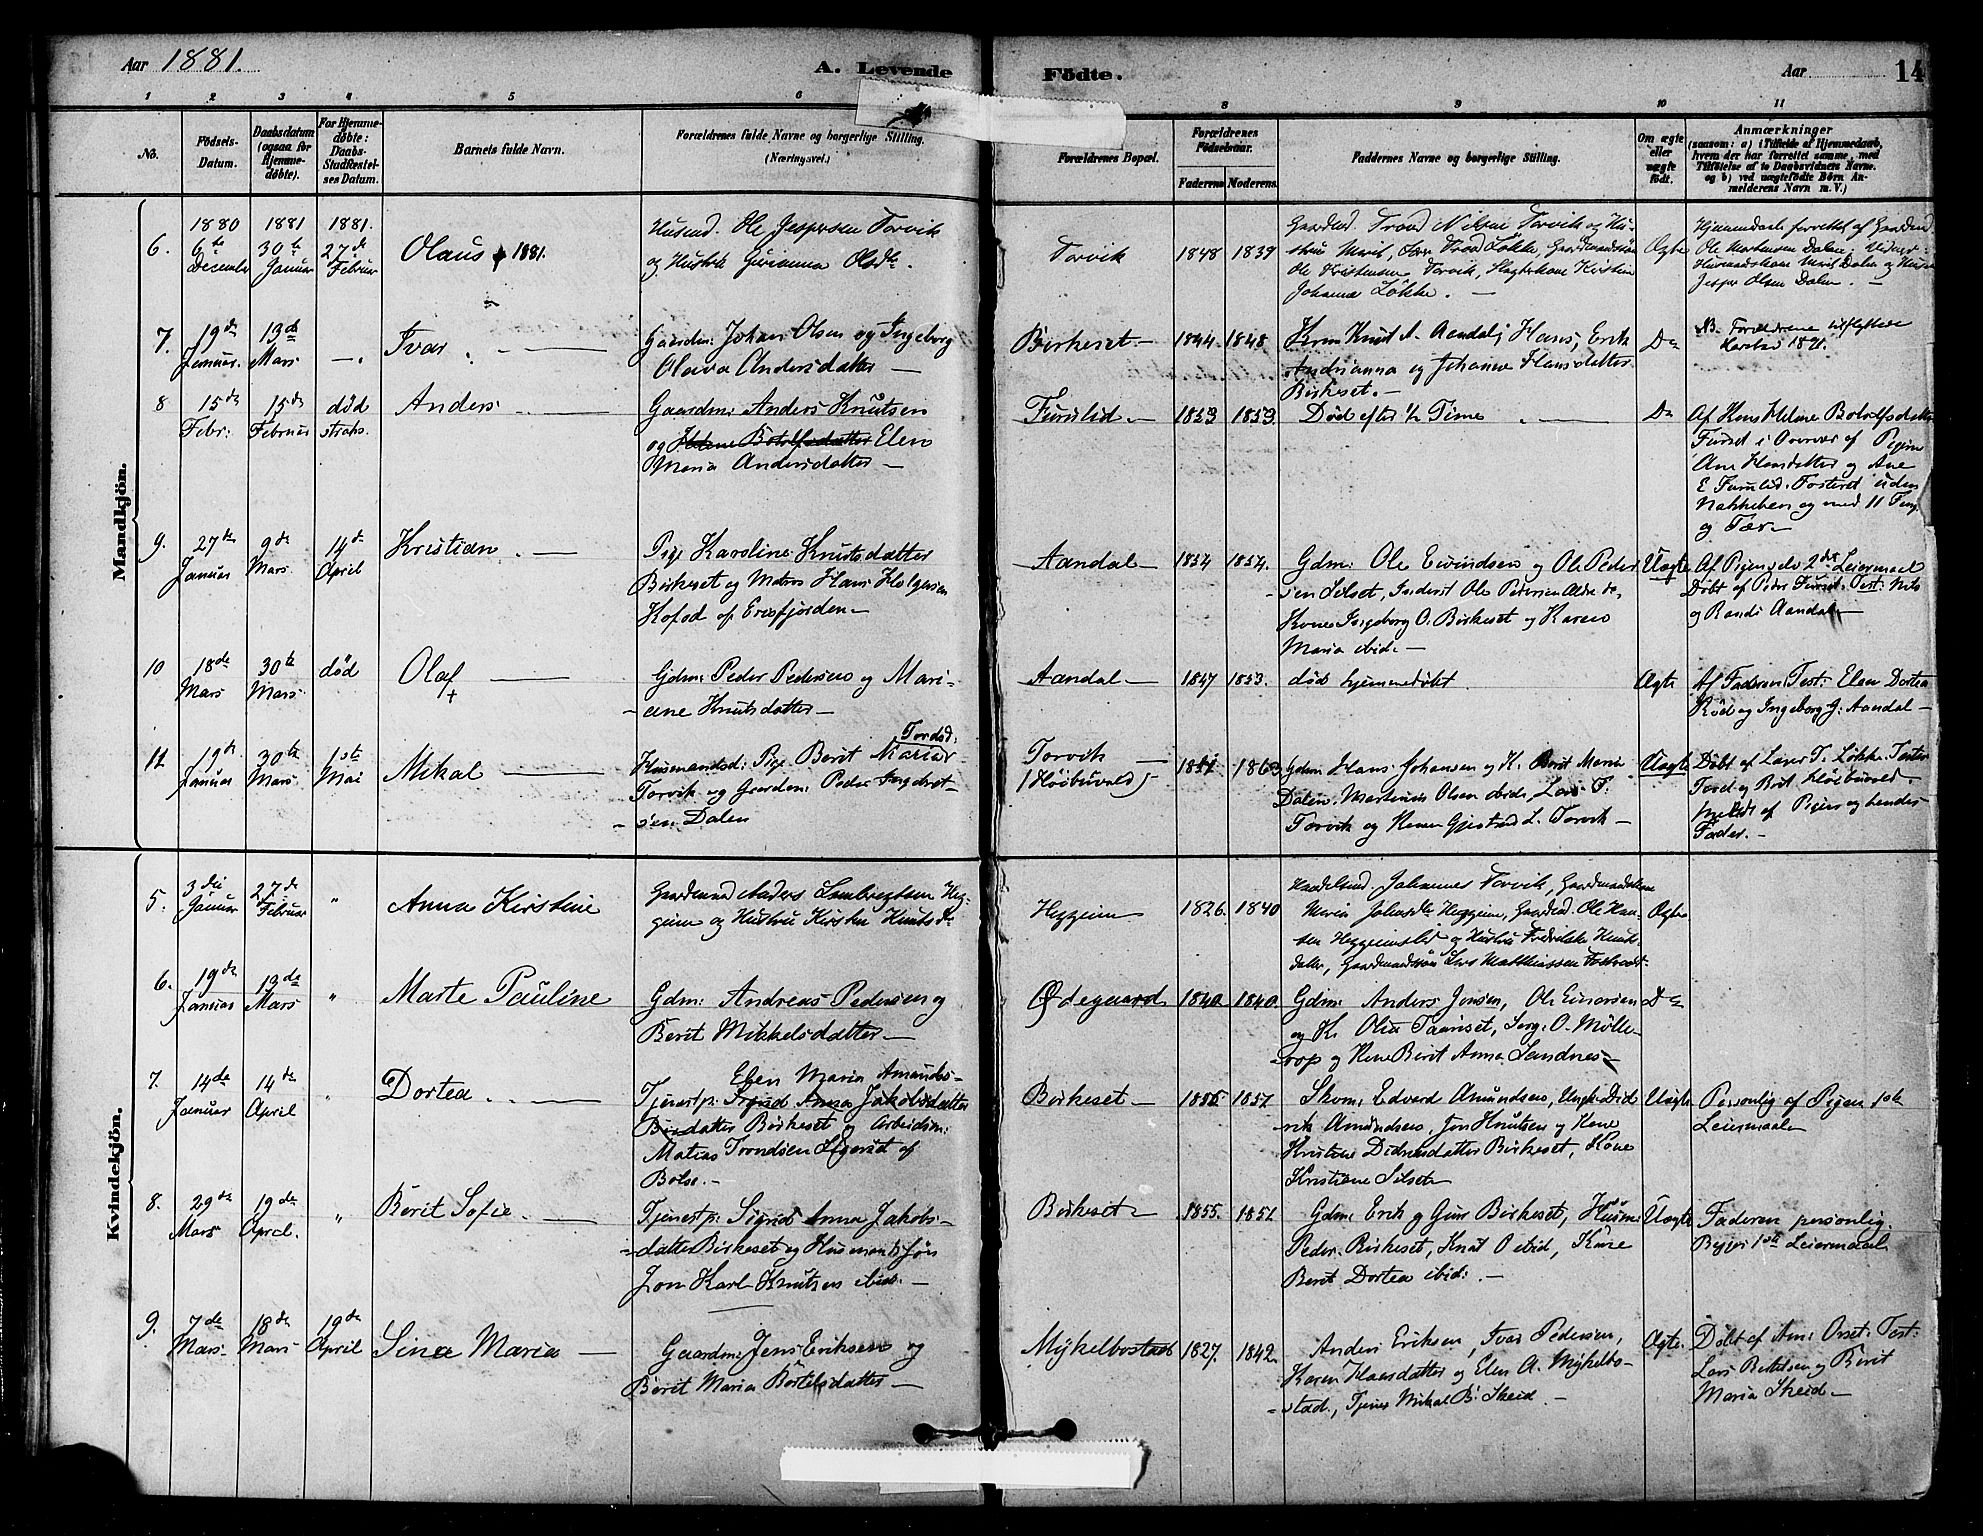 Aar 1881.
A. Levende
Födte.
Aar
14
1 2 3 4 5 6 8 9 10 11
No.
Födsels-
Datum.
Daabsdatum
(ogsaa for
Hjemme-
döbte).
For Hjemme-
döbte:
Daabs-
Stadfæstel-
ses Datum.
Barnets fulde Navn.
Forældrenes fulde Navne og borgerlige Stilling.
(Næringsvei.)
Forældrenes Bopæl.
Forældrenes
Födselsaar.
Faderens Moderens
Faddernes Navne og borgerlige Stilling.
Om ægte
eller
uægte
födt.
Anmærkninger
(saasom: a) i Tilfælde af Hjemmedaab,
hvem der har forrettet samme, med
Tilföielse af to Daabsvidners Navne.
og b) ved uægtefödte Börn An-
melderens Navn m. V.)
Mandkjön.
6.
1880
6te
December
1881
30te
Januar
1881.
27de
Februar
Olaus + 1881.
Husmd. Ole Jespersen Torvik
og Hustru Gurianna Olsdtr.
Torvik
1848 1839
Gaardmd. Trond Nilsen Torvik og Hu-
stru Marit, Lars Trond Løkke, Gaardmandssøn
Ole Kristensen Torvik, Slagterkone Kirsten
Johanne Løkke. —
Ægte
Hjemmedaab forrettet af Gaardmd.
Ole Mortensen Dalen. Vidner:
Husmandskone Marit Dalen og Husm.
Jesper Olsen Dalen. —
7.
19de
Januar.
13de
Mars
— .
Ivar . —
Gaardm: Johan Olsen og Ingeborg
Olava Andersdatter —
Birkeset —
1844. 1848.
Knut A. Aandal, Hans, Erik
Andrianna og Johanne Hansdatter
Birkeset. —
Do
NB. Forældrene utflyttede
1891.
8
15de
Febr:
15de
Februar
død
straks.
Anders . —
Gaardm: Anders Knutsen
og Helene Botolfsdatter Elen
Maria Andersdatter —
Furulid —
1853 1853.
Død efter 1/2 Time . —
Do
Af Kone Helene Botolfsdatter
Furset i Overvær af Pigerne
Ane Hansdatter og Ane
E. Furulid. Fosteret uden
Nakkeben og med 11 Fing.
og Tær —
9.
27de
Januar
9de
Mars.
14de
April
Kristian . —
Pige Karoline Knutsdatter
Birkeset og Matros Hans Holgersen
Kofod af Eresfjorden —
Aandal —
1854 1854.
Gdm: Ole Eivindsen og Ole Peder-
sen Silset, Inderst Ole Pedersen Aldre do,
Kone Ingeborg O. Birkeset og Karen
Maria ibid. —
Uægte
+
Af Pigen selv 2det Leiermaal
Døbt af Peder Furset. Test: Nils
og Randi Aandal —
10
18de
Mars
30te
Mars.
død
Olaf —
+
Gdm: Peder Pedersen og Mari-
ane Knutsdatter —
Aandal —
1847 1853.
død hjemmedøbt
Ægte
Af Faderen Test: Elen Dortea
Röd og Ingeborg J. Aandal —
11
19de
Januar
30te
Mars
1ste
Mai
Mikal —
Tordsd.
Husmandsd: Pige Berit Maria
Torvik og Gaardm: Peder Ingebrigt-
sen Dalen
Torvik
(Høibuvald)
1851 1863
Gdm Hans Johansen og H. Berit Maria
Dalen, Martinus Olsen ibid, Lars T.
Torvik og Kone Gjertrud L. Torvik —
Uægte
Døbt af Lars T. Løkke. Test:
Tord og Brit Høibuvald
af Pigen og hendes
Fader. —
Kvindekjön.
5.
3die
Januar
27de
Februar
"
Anna Kirstine
Gaardmand Anders Lambregtsen Heg-
geim og Hustru Kirsten Knutsd.
Heggeim
1826. 1840
Handelsmd. Johannes Torvik, Gaardmandskone
Maria Johansdtr Heggeim, Gaardmd. Ole Han-
sen Heggeimslid og Hustru Fredrikke Knuts-
datter, Gaardmandssøn Lars Matthiassen
Ægte
6.
19de
Januar
13de
Mars
"
Marte Pauline
Gdm: Andreas Pedersen og
Berit Mikkelsdatter —
Ødegaard
1840 1840.
Gdm: Anders Jensen, Ole Einarsen
og K. Olia Taanset, Serg: O. Mölle-
rop og Kone Berit Anna Sandnes —
Do
7.
14de
Januar
14de
April
"
Dortea . —
Elen Maria Amunds-
Tjenestp: Sigrid Anna Jakobsdatter
datter Birkeset og Arbeidsm:
Matias Trondsen Lyseröd af
Bolsø. —
Birkeset —
1856 1857
Skom: Edvard Amundsen, Ungk: Did-
rik Amundsen, Jon Knutsen og Kone
Kristine Didriksdatter Birkeset, Kone
Kristiane Silset —
Uægte
Personlig af Pigen 1ste
Leiermaal —
8.
29de
Mars
19de
April.
"
Berit Sofie . —
Tjenestp: Sigrid Anna Jakobs-
datter Birkeset og Husmandssøn
Jon Karl Knutsen ibid: —
Birkeset —
1855. 1851
Gdm: Erik og Guri Birkeset, Husm:
Peder Birkeset, Knut O ibid, Kone
Berit Dortea ibid: —
Uægte
Faderen personlig.
Begges 1ste Leiermaal
9.
7de
Mars
18de
Mars
19de
April
Sina Maria —
Gaardm: Jens Eriksen og
Berit Maria Bertelsdatter —
Mykelbostad
1827. 1842.
Anders Eriksen, Ivar Pedersen,
Karen Hansdatter og Elen A. Mykelbo-
stad., Tjener Mikal B. Skeid. —
Ægte.
Döbt af Am: Orset: Test:
Lars Bertelsen og Berit
Maria Skeid —